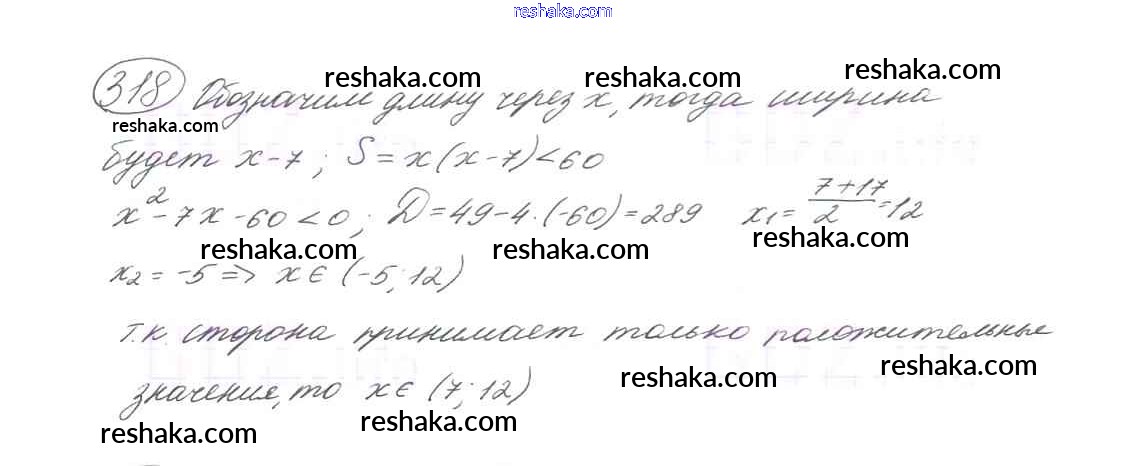 reshaka.com
318 Обозначим длину через x, тогда ширина
reshaka.com reshaka.com reshaka.com
будет x-7; S=x(x-7)<60
x²-7x-60<0; D=49-4·(-60)=289 x₁=(7+17)/2=12
reshaka.com reshaka.com reshaka.com
x₂=-5=> x∈(-5;12)
т.к. сторона принимает только положительные
reshaka.com reshaka.com
значения, то x∈(7;12)
reshaka.com reshaka.com